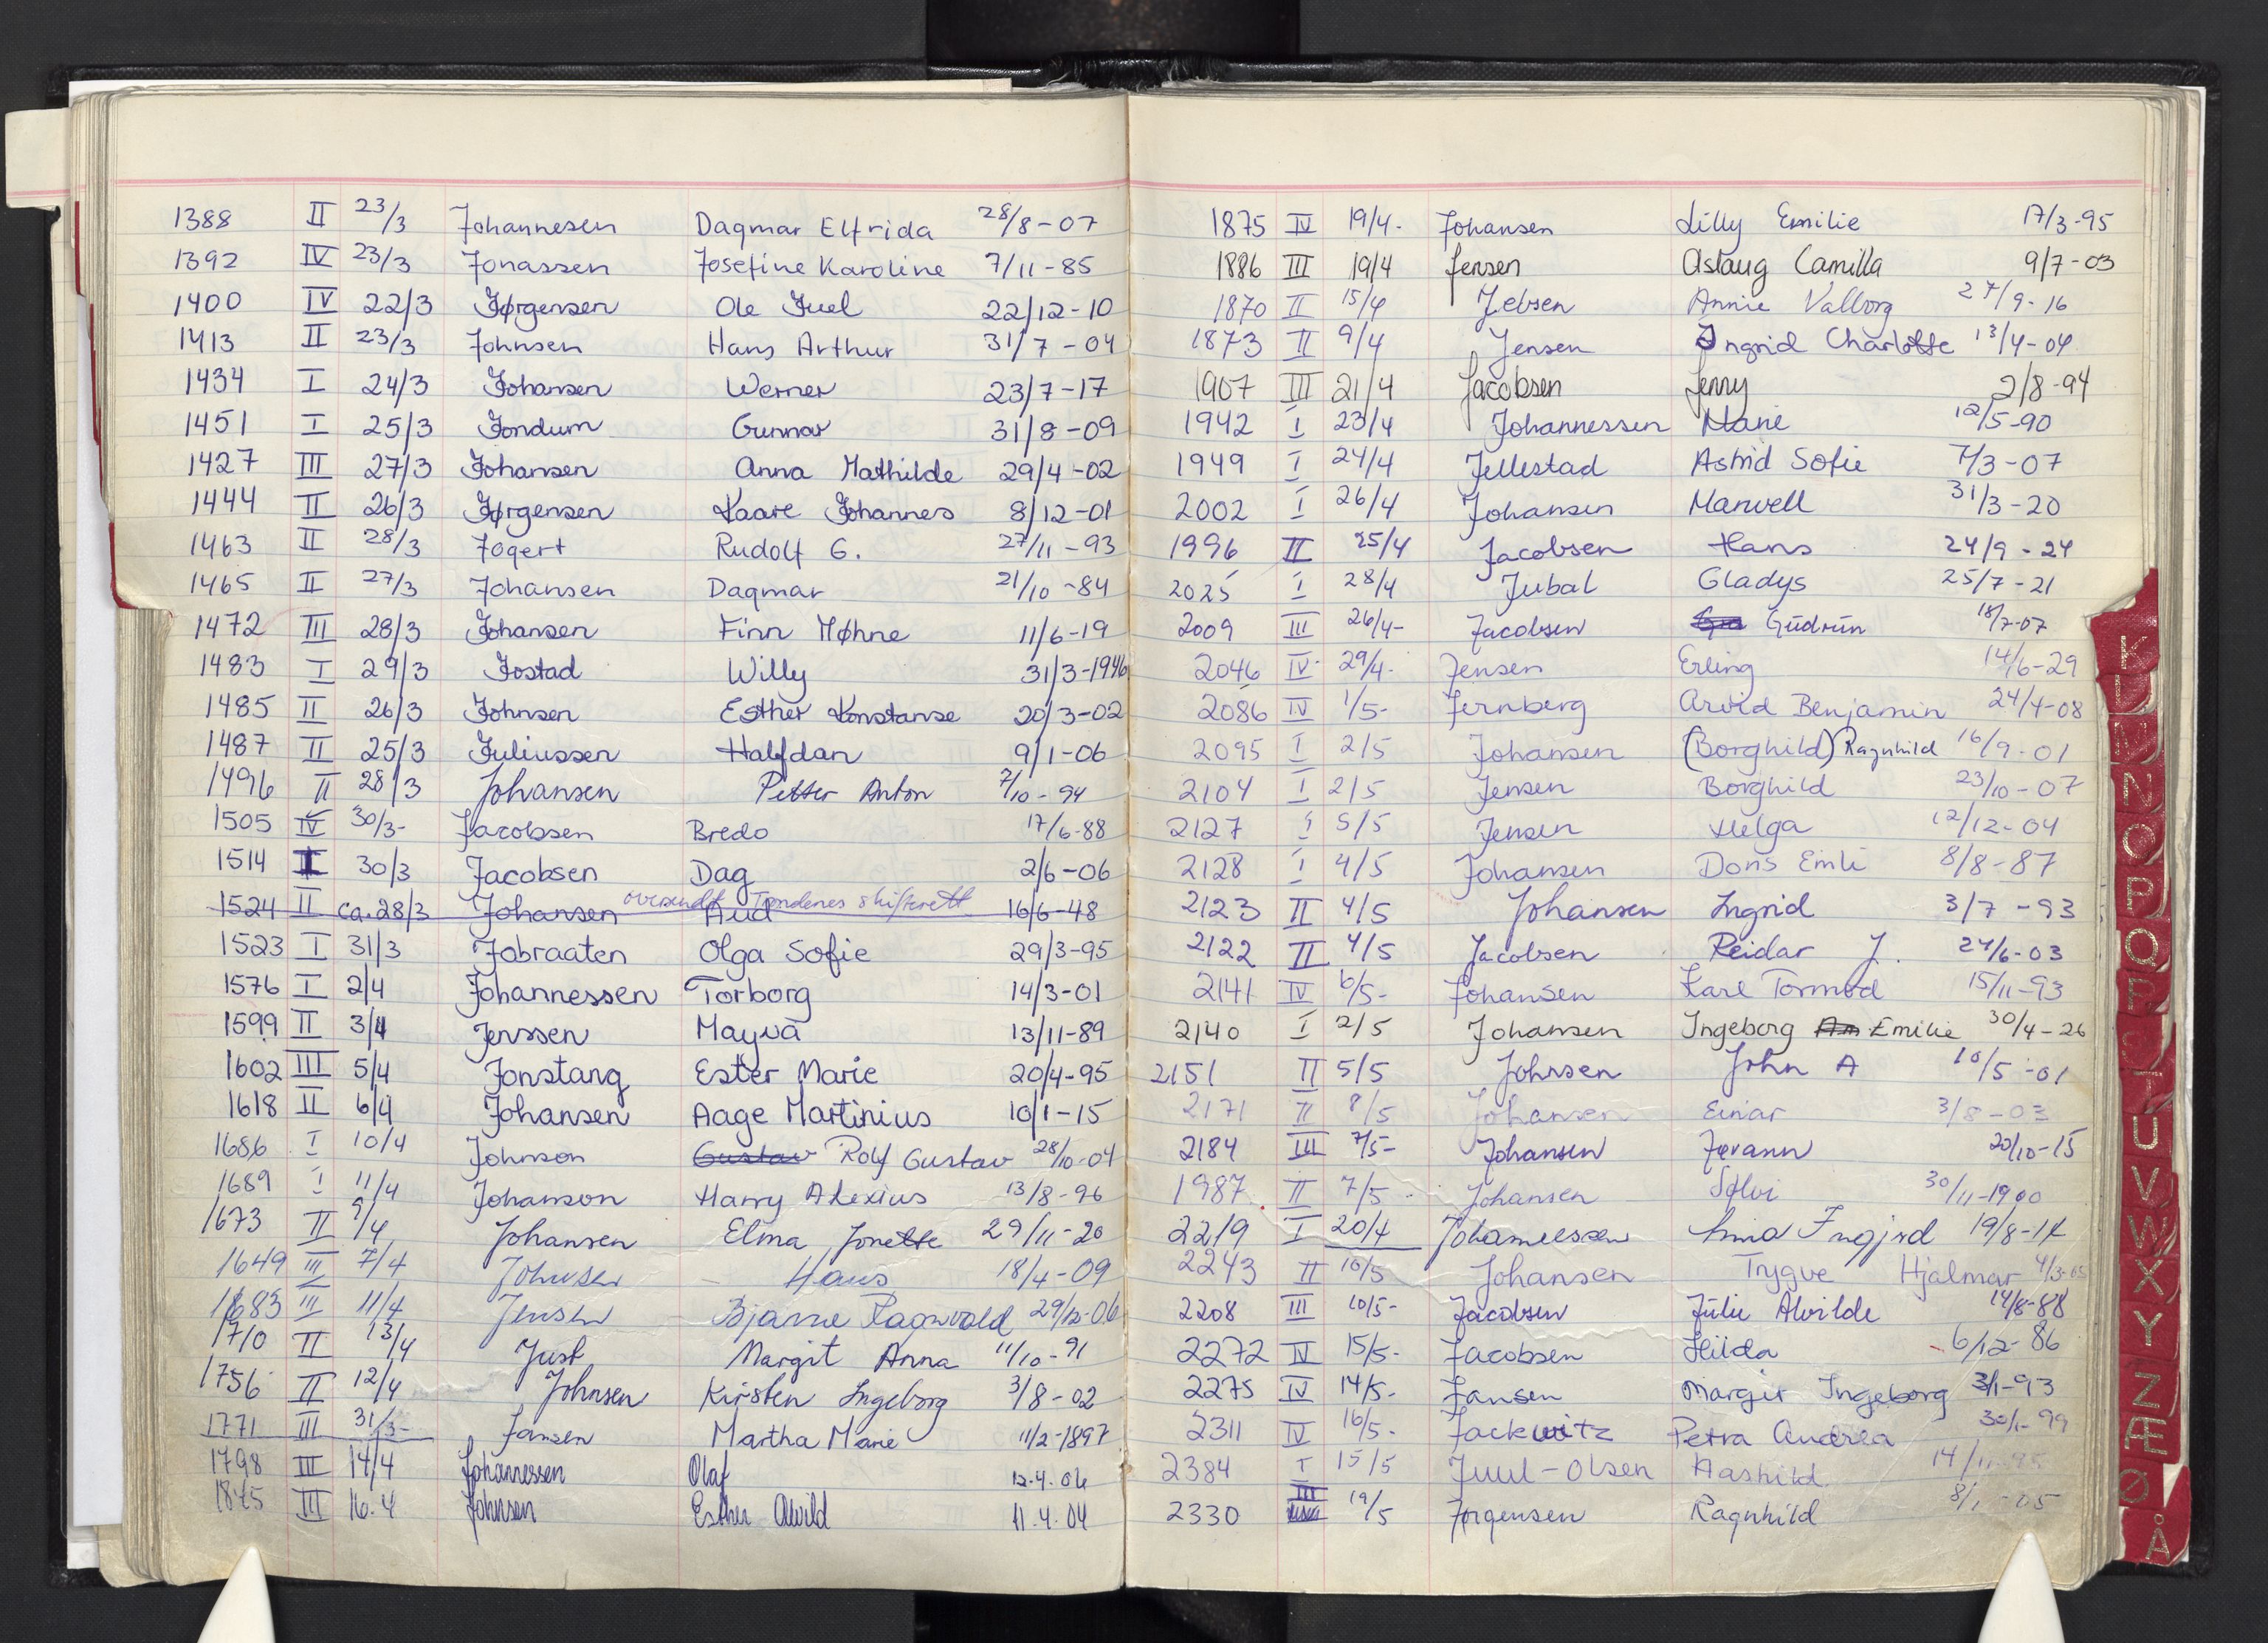 1388 II 23/3 Johannesen Dagmar Elfrida 28/8-07
1392 IV 23/3 Jonassen Josefine Karoline 7/11-85
1400 IV 22/3 Jørgensen Ole Juel 22/12-10
1413 II 23/3 Johnsen Hans Arthur 31/7-04
1434 I 24/3 Johansen Werner 23/7-17
1451 I 25/3 Jondum Gunnar 31/8-09
1427 III 27/3 Johansen Anna Mathilde 29/4-02
1444 II 26/3 Jørgensen Kaare Johannes 8/12-01
1463 II 28/3 Jogert Rudolf G. 27/11-93
1465 II 27/3 Johansen Dagmar 21/10-84
1472 III 28/3 Johansen Finn Møhne 11/6-19
1483 I 29/3 Jostad Willy 31/3-1946
1485 II 26/3 Johnsen Esther Konstanse 20/3-02
1487 II 25/3 Juliussen Halfdan 9/1-06
1496 II 28/3 Johansen Petter Anton 7/10-94
1505 IV 30/3- Jacobsen Bredo 17/6-88
1514 I 30/3 Jacobsen Dag 2/6-06
oversendt Tøndenes skifterett
1524 II ca. 28/3 Johansen Aud 16/6-48
1523 I 31/3 Jobraaten Olga Sofie 29/3-95
1576 I 2/4 Johannessen Torborg 14/3-01
1599 II 3/4 Jenssen Mayva 13/11-89
1602 III 5/4 Jonstang Ester Marie 20/4-95
1618 II 6/4 Johansen Aage Martinius 10/1-15
1686 I 10/4 Johnson Gustav Rolf Gustav 28/10-04
1689 I 11/4 Johanson Harry Alexius 13/8-96
1673 II 9/4 Johansen Elma Jonette 29/11-20
1649 III 7/4 Johnsen Hans 18/4-09
1683 III 11/4 Jensen Bjarne Ragnvald 29/12-06
1710 II 13/4 Just Margit Anna 11/10-91
1756 II 12/4 Johnsen Kirsten Ingeborg 3/8-02
1771 III 31/3- Jansen Martha Marie 11/2-1897
1798 III 14/4 Johannessen Olaf 12.4.06
1845 III 16.4 Johnsen Esther Alvild 11.4.04
1875 IV 19/4- Johansen Lilly Emilie 17/3-95
1886 III 19/4 Jensen Aslaug Camilla 9/7-03
1870 II 15/4 Jebsen Annie Valborg 27/9-16
1873 II 9/4 Jensen Ingrid Charlotte 13/4-04
1907 III 21/4 Jacobsen Jenny 2/8-94
1942 I 23/4 Johannessen Marie 12/5-90
1949 I 24/4 Jellestad Astrid Sofie 7/3-07
2002 I 26/4 Johansen Marvell 31/3-20
1996 II 25/4 Jacobsen Hans 24/9-24
2025 I 28/4 Jubal Gladys 25/7-21
2009 III 26/4- Jacobsen Gudrun 18/7-07
2046 IV 29/4- Jensen Erling 14/6-29
2086 IV 1/5- Jernberg Arvid Benjamin 24/4-08
2095 I 2/5 Johansen (Borghild) Ragnhild 16/9-01
2104 I 2/5 Jensen Borghild 23/10-07
2127 I 5/5 Jensen Helga 12/12-04
2128 I 4/5 Johansen Doris Emli 8/8-87
2123 II 4/5 Johansen Ingrid 3/7-93
2122 II 4/5 Jacobsen Reidar J. 24/6-03
2141 IV 6/5- Johansen Karl Tormod 15/11-93
2140 I 2/5 Johansen Ingeborg An Emilie 30/4-26
2151 II 5/5 Johnsen John A 10/5-01
2171 II 8/5 Johansen Einar 3/8-03
2184 III 7/5- Johansen Jørann 20/10-15
1987 II 7/5- Johansen Sølvi 30/11-1900
2219 I 20/4 Johannessen Anna Ingjrd 19/8-14
2243 II 10/5 Johansen Trygve Hjalmar 4/3-05
2208 III 10/5- Jacobsen Julie Alvilde 14/8-88
2272 IV 15/5- Jacobsen Hilda 6/12-86
2275 IV 14/5- Jansen Margit Ingeborg 3/1-93
2311 IV 16/5- Jackwitz Petra Andrea 30/1-99
2384 I 15/5 Juul-Olsen Aashild 14/11-95
2330 III 19/5 Jørgensen Ragnhild 8/1-05
K
L
M
N
O
P
Q
R
S
T
U
V
W
X
Y
Z
Æ
Ø
Å